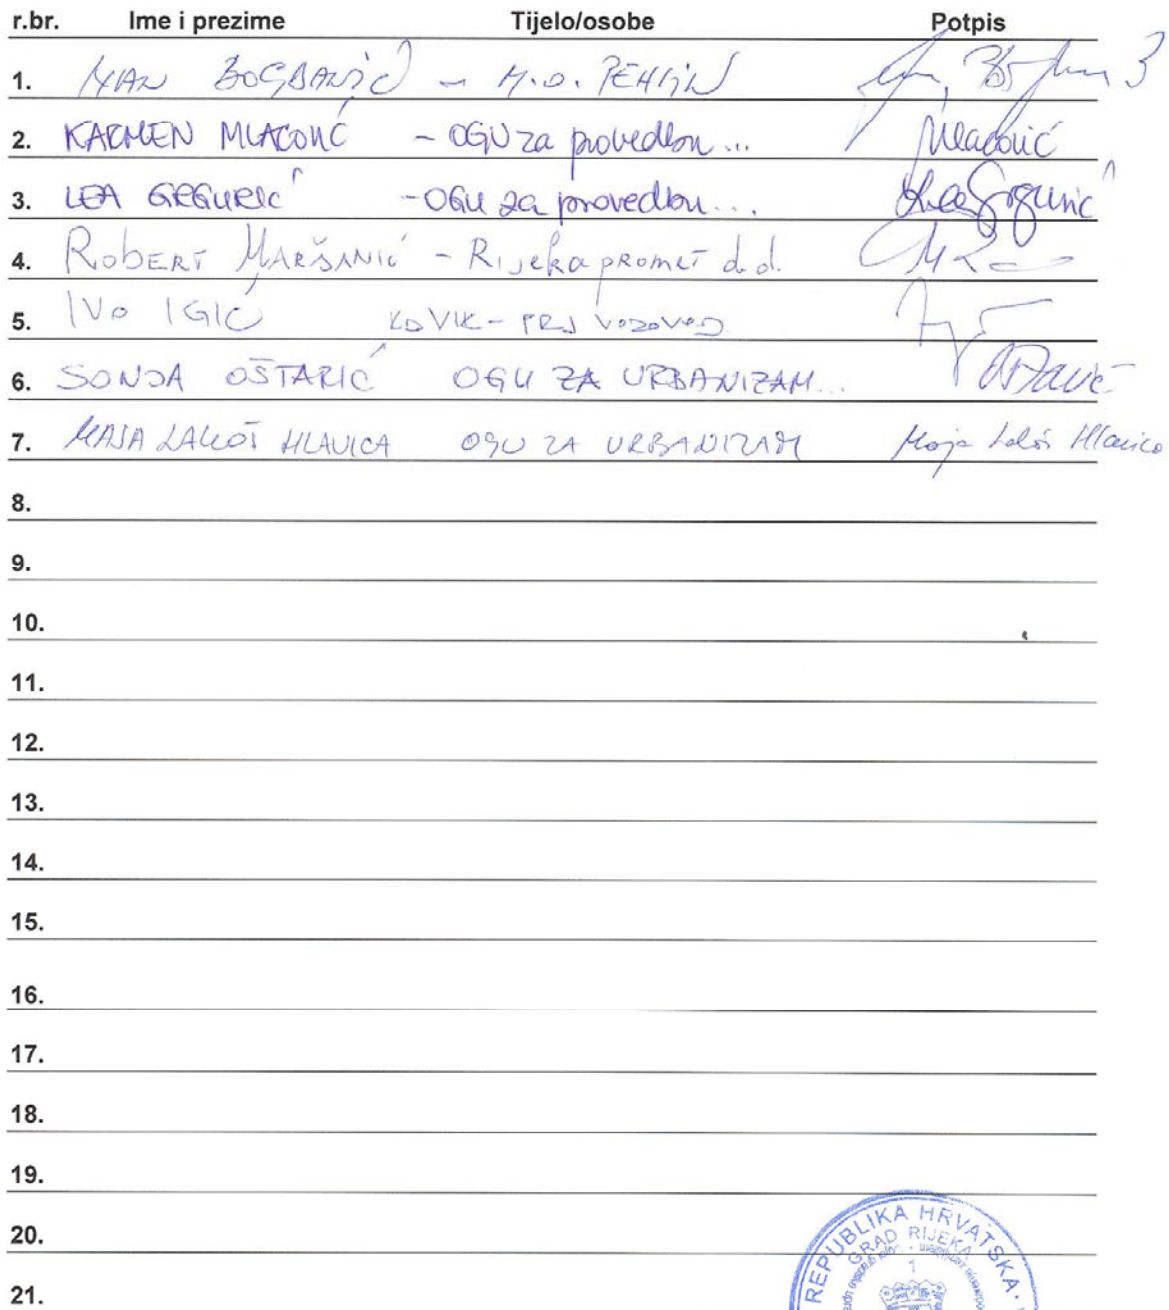 r.br. Ime i prezime Tijelo/osobe Potpis
1. BOGDANIĆ - M.O. PEHLIN
2. KARMEN MLACOVIĆ - OGU za provedbu ... Mlacović
3. LEA GRGURIĆ - OGU za provedbu ... Lea Grgurić
4. ROBERT MARŠANIĆ - Rijeka promet d.d.
5. IVO IGIĆ KD VIK - PRJ VODOVOD
6. SONJA OŠTARIĆ OGU ZA URBANIZAM...
7. MAJA LALIOŠ HLAVICA OGU ZA URBANIZAM Maja Hlavica
8.
9.
10.
11.
12.
13.
14.
15.
16.
17.
18.
19.
20.
21.
REPUBLIKA HRVATSKA
GRAD RIJEKA
1